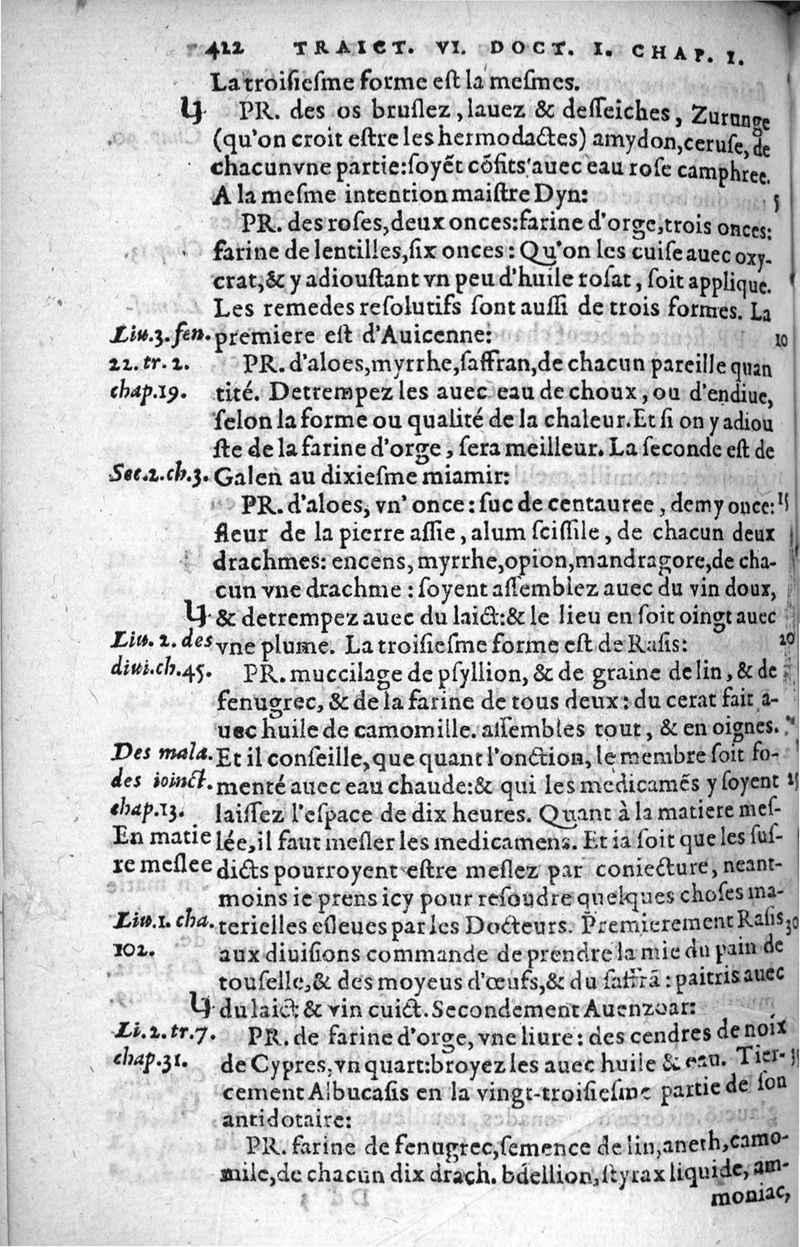 422 TRAICT. VI. DOCT. I. CHAP. I.
La troiſieſme forme eſt la meſmes.
PR. des os bruſlez, lauez & deſſeiches, Zurunge
(qu'on croit eſtre les hermodactes) amydon, ceruſe, de
chacun vne partie: ſoyẽt cõfits auec eau roſe camphree.
A la meſme intention maiſtre Dyn: 5
PR. des roſes, deux onces: farine d'orge, trois onces:
farine de lentilles, ſix onces: Qu'on les cuiſe auec oxy-
crat, & y adiouſtant vn peu d'huile roſat, ſoit applique.
Les remedes reſolutifs ſont auſſi de trois formes. La
Liu. 3. fen. premiere eſt d'Auicenne: 10
22. tr. 2. PR. d'aloes, myrrhe, ſaffran, de chacun pareille quan
chap. 19. tité. Detrempez les auec eau de choux, ou d'endiue,
ſelon la forme ou qualité de la chaleur. Et ſi on y adiou
ſte de la farine d'orge, ſera meilleur. La ſeconde eſt de
Sec. 2. ch. 3. Galen au dixieſme miamir:
PR. d'aloes, vn' once: ſuc de centauree, demy once: 15
fleur de la pierre aſſie, alum ſciſſile, de chacun deux
drachmes: encens, myrrhe, opion, mandragore, de cha-
cun vne drachme: ſoyent aſſemblez auec du vin doux,
& detrempez auec du laict: & le lieu en ſoit oingt auec
Liu. 2. des vne plume. La troiſieſme forme eſt de Raſis: 20
diui. ch. 45. PR. muccilage de pſyllion, & de graine de lin, & de
fenugrec, & de la farine de tous deux: du cerat fait a-
uec huile de camomille. aſſembles tout, & en oignes.
Des mala. Et il conſeille, que quant l'onction, le membre ſoit fo-
des ioinct. menté auec eau chaude: & qui les medicamẽs y ſoyent 25
chap. 13. laiſſez l'eſpace de dix heures. Quant à la matiere meſ-
En matie lée, il faut meſler les medicamens. Et ia ſoit que les ſuſ-
re meſlee dicts pourroyent eſtre meſlez par coniecture, neant-
moins ie prens icy pour reſoudre quelques choſes ma-
Liu. 1. cha. terielles eſleues par les Docteurs. Premierement Raſis 30
102. aux diuiſions commande de prendre la mie du pain de
touſelle, & des moyeus d'œufs, & du ſaffrã: paitris auec
du laict & vin cuict. Secondement Auenzoar:
Li. 2. tr. 7. PR. de farine d'orge, vne liure: des cendres de noix
chap. 31. de Cypres, vn quart: broyez les auec huile & eau. Tier-
cement Albucaſis en la vingt-troiſieſme partie de ſon
antidotaire:
PR. farine de fenugrec, ſemence de lin, aneth, camo-
mile, de chacun dix drach. bdellion, ſtyrax liquide, am-
moniac,